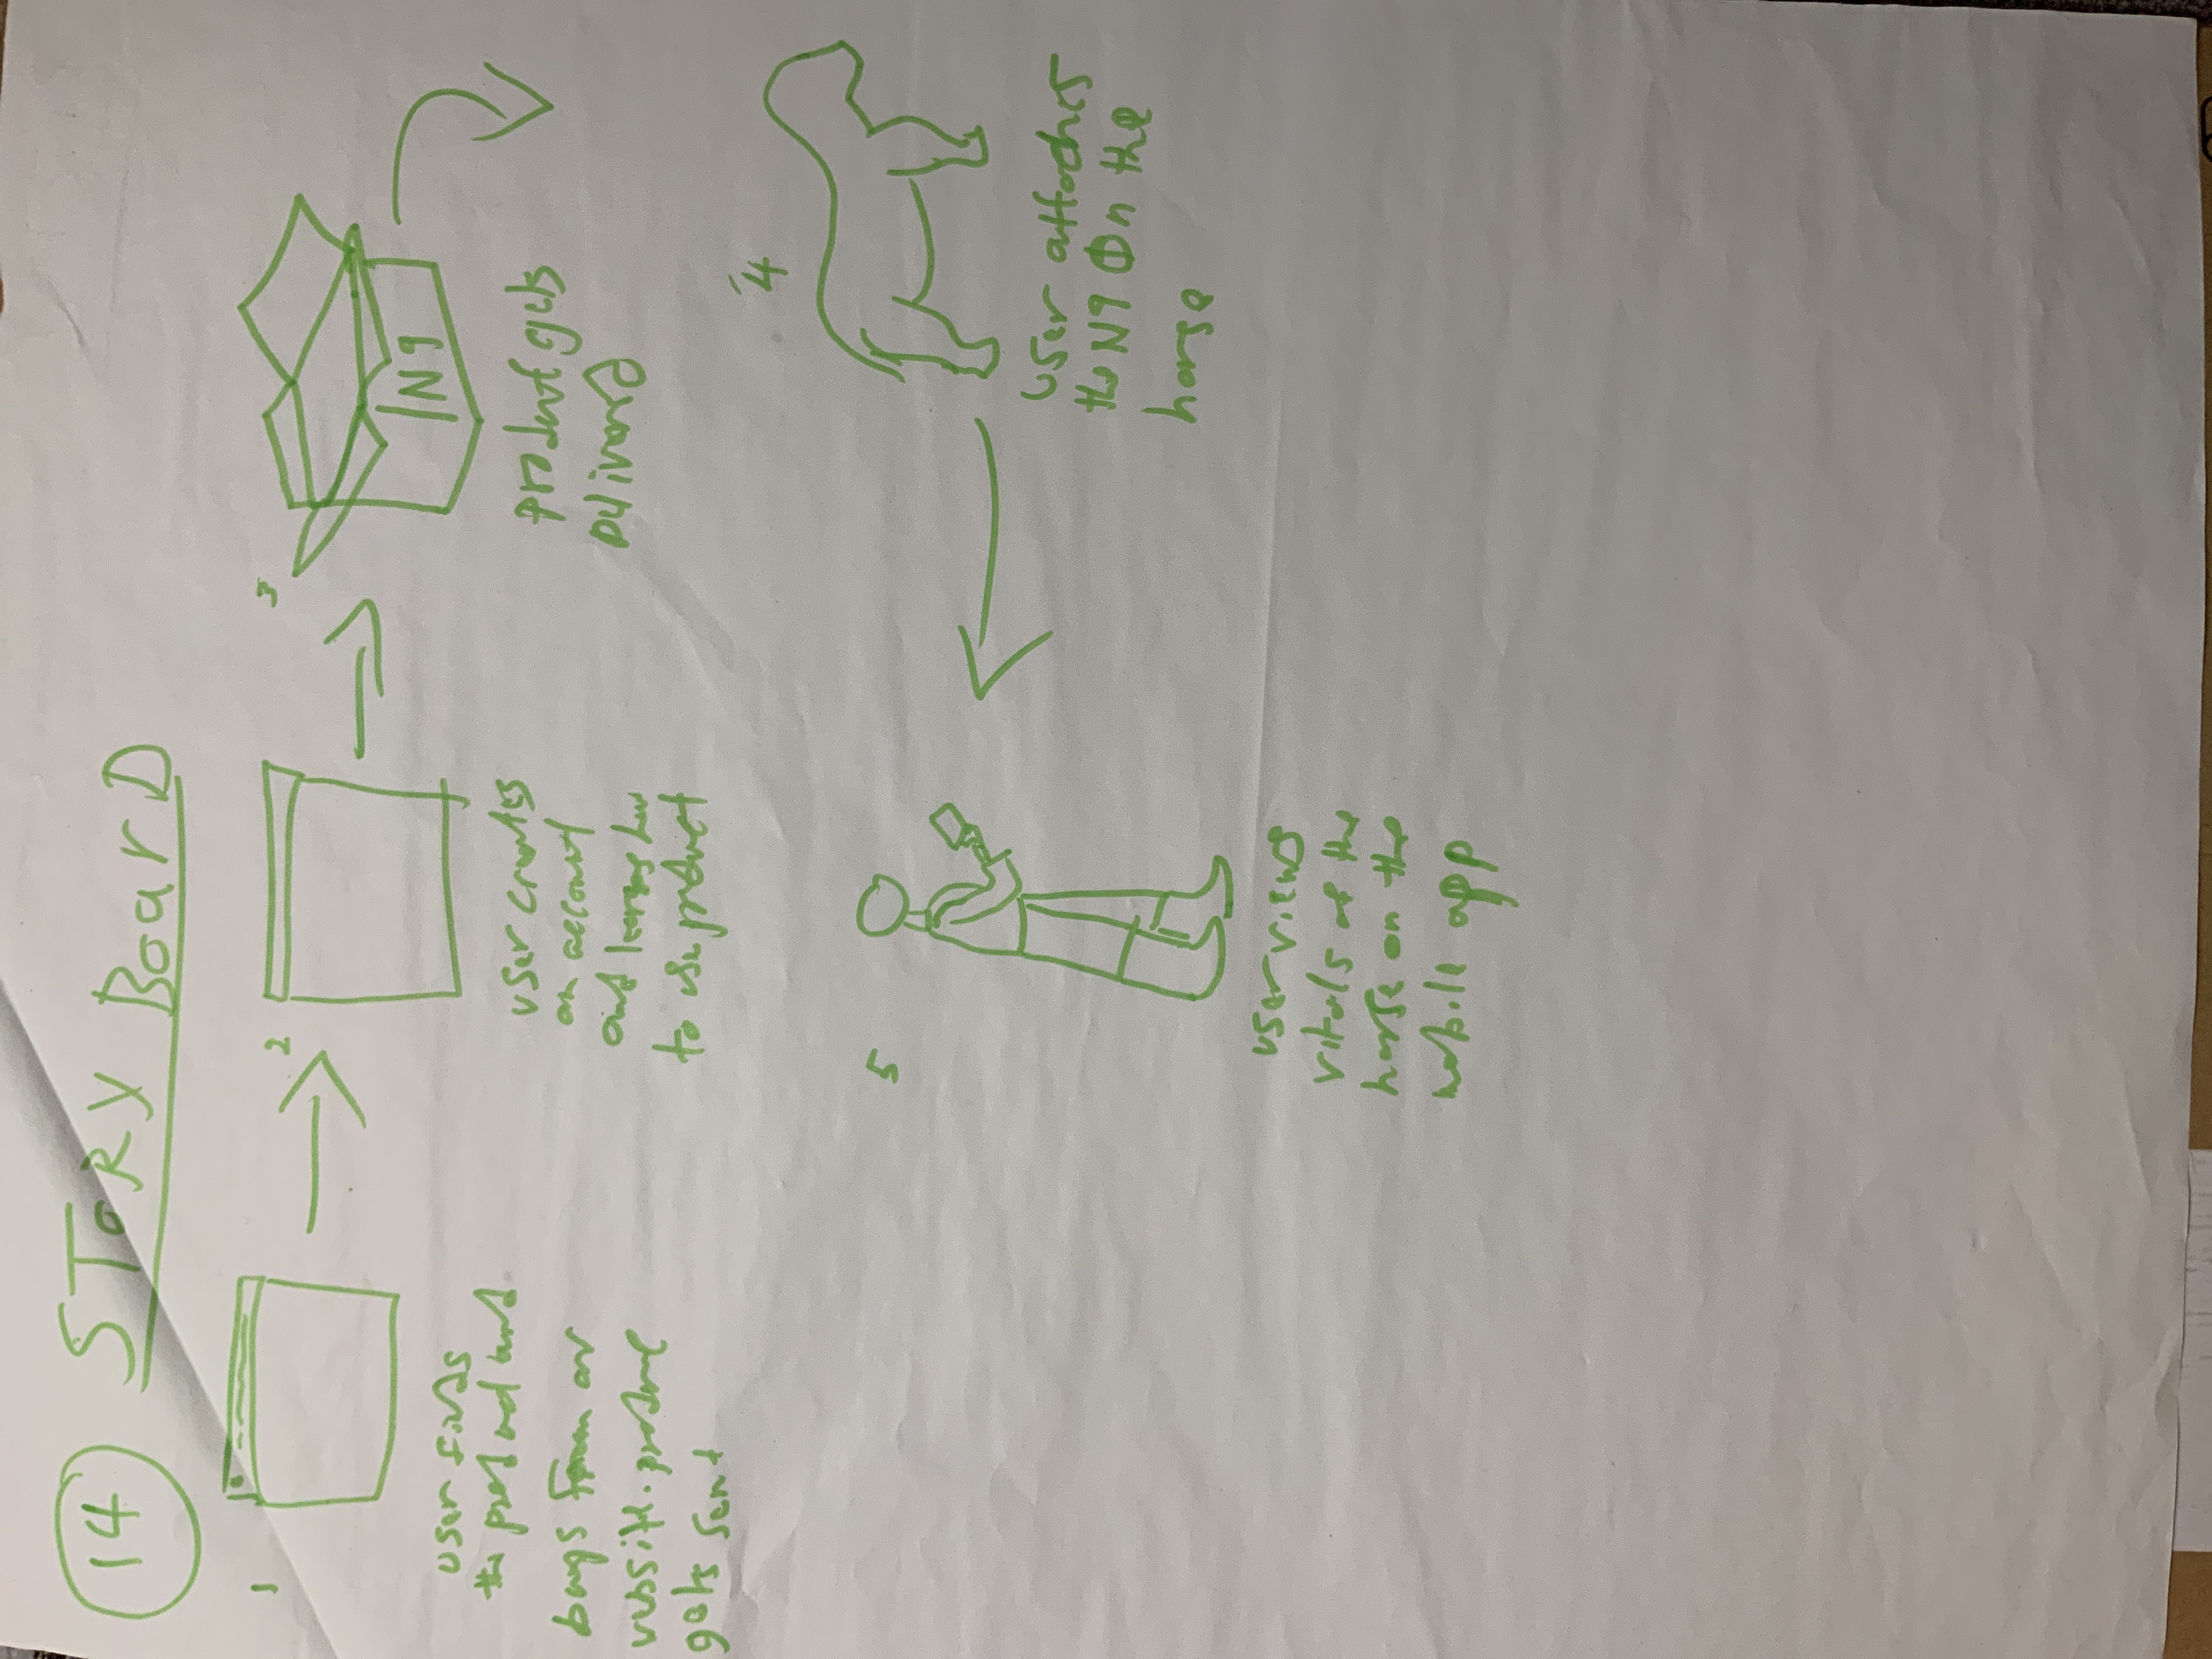 14 STORY BoarD
1
user finds
the product and
buys from our
website. product
gets sent
2
user creates
an account
and learns how
to use product
3
N9
product gets
Delivered
4
user attaches
the N9 On the
horse
5
user views
vitals of the
horse on the
mobile app